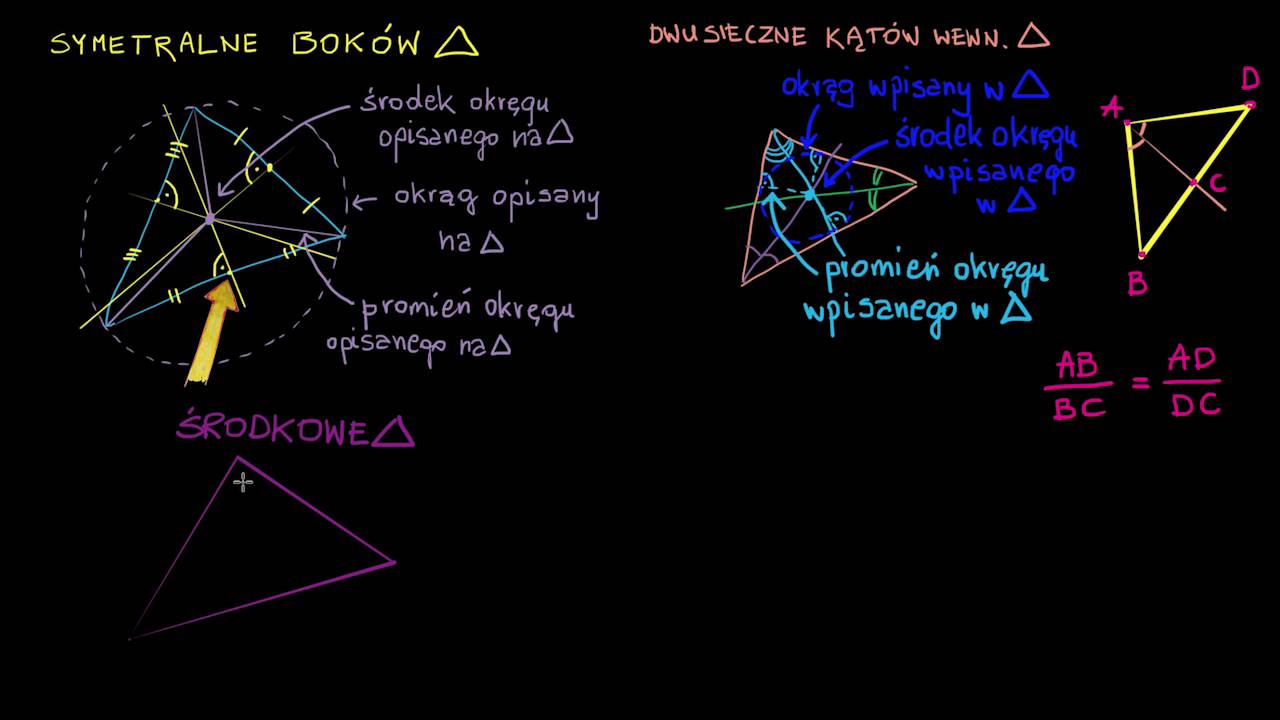 SYMETRALNE BOKÓW △
środek okręgu
opisanego na △
okrąg opisany
na △
promień okręgu
opisanego na △
DWUSIECZNE KĄTÓW WEWN. △
okrąg wpisany w △
środek okręgu
wpisanego
w △
promień okręgu
wpisanego w △
A
D
C
B
AB/BC = AD/DC
ŚRODKOWE △